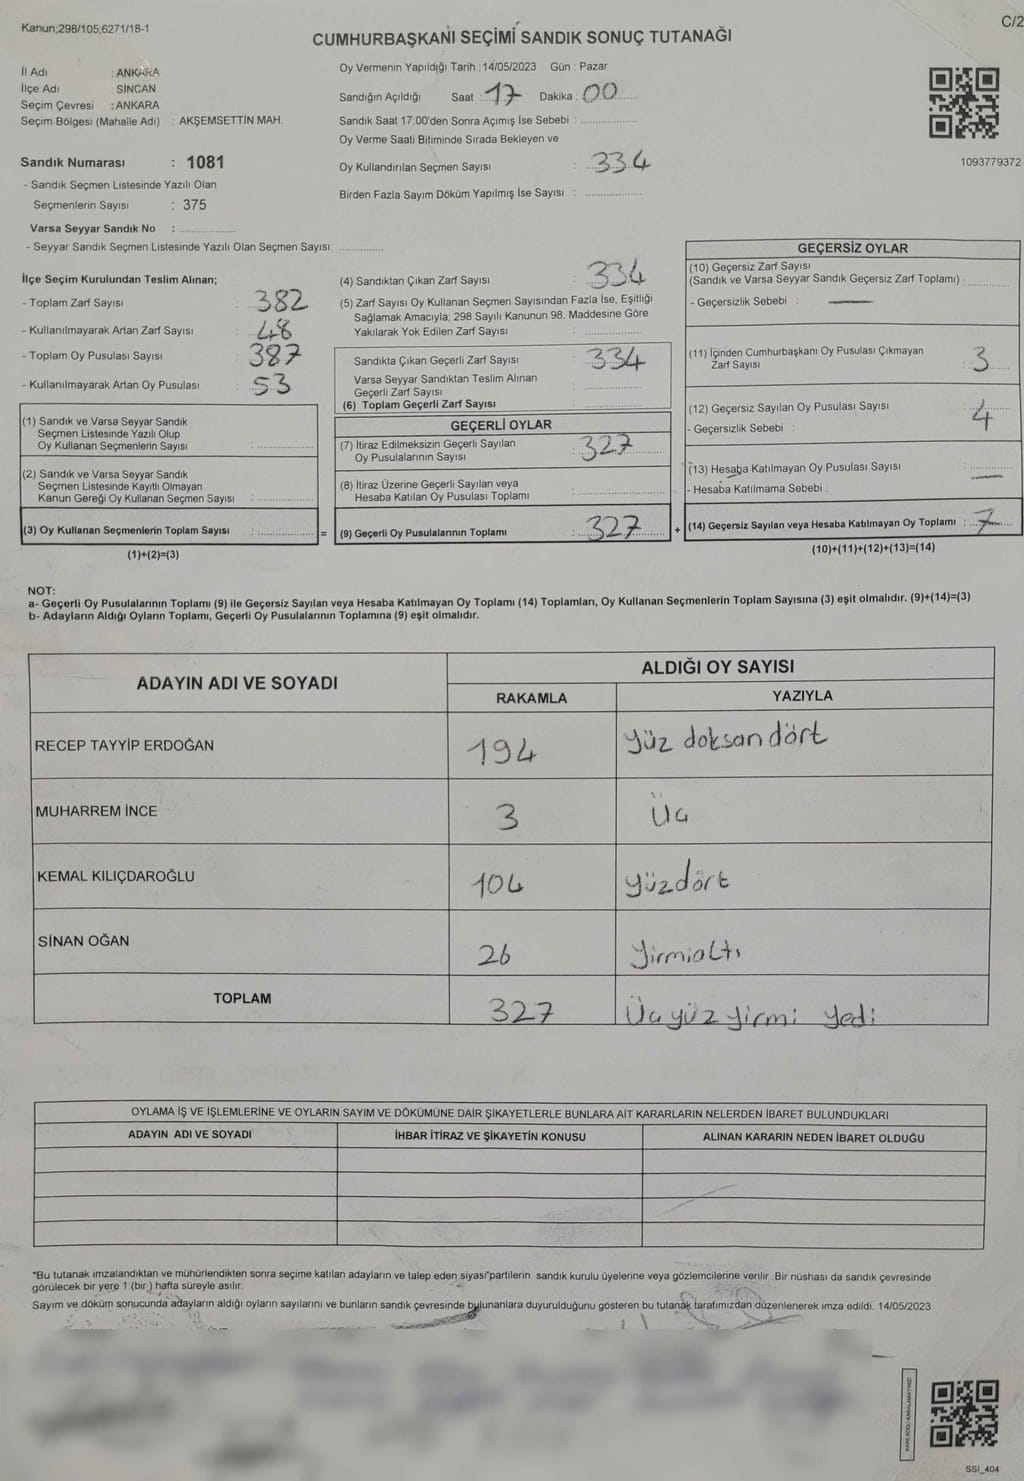 Kanun;298/105;6271/18-1
C/2
CUMHURBAŞKANI SEÇİMİ SANDIK SONUÇ TUTANAĞI
İl Adı : ANKARA
İlçe Adı : SİNCAN
Seçim Çevresi : ANKARA
Seçim Bölgesi (Mahalle Adı) : AKŞEMSETTİN MAH.
Oy Vermenin Yapıldığı Tarih : 14/05/2023 Gün : Pazar
Sandığın Açıldığı Saat : 17 Dakika : 00
Sandık Saat 17:00'den Sonra Açımış İse Sebebi :
Oy Verme Saati Bitiminde Sırada Bekleyen ve
Oy Kullandırılan Seçmen Sayısı : 334
Birden Fazla Sayım Döküm Yapılmış İse Sayısı :
1093779372
Sandık Numarası : 1081
- Sandık Seçmen Listesinde Yazılı Olan
Seçmenlerin Sayısı : 375
Varsa Seyyar Sandık No :
- Seyyar Sandık Seçmen Listesinde Yazılı Olan Seçmen Sayısı:
İlçe Seçim Kurulundan Teslim Alınan;
- Toplam Zarf Sayısı : 382
- Kullanılmayarak Artan Zarf Sayısı : 48
- Toplam Oy Pusulası Sayısı : 387
- Kullanılmayarak Artan Oy Pusulası : 53
(1) Sandık ve Varsa Seyyar Sandık
Seçmen Listesinde Yazılı Olup
Oy Kullanan Seçmenlerin Sayısı :
(2) Sandık ve Varsa Seyyar Sandık
Seçmen Listesinde Kayıtlı Olmayan
Kanun Gereği Oy Kullanan Seçmen Sayısı :
(3) Oy Kullanan Seçmenlerin Toplam Sayısı : =
(1)+(2)=(3)
(4) Sandıktan Çıkan Zarf Sayısı : 334
(5) Zarf Sayısı Oy Kullanan Seçmen Sayısından Fazla İse, Eşitliği
Sağlamak Amacıyla; 298 Sayılı Kanunun 98. Maddesine Göre
Yakılarak Yok Edilen Zarf Sayısı :
Sandıkta Çıkan Geçerli Zarf Sayısı : 334
Varsa Seyyar Sandıktan Teslim Alınan
Geçerli Zarf Sayısı :
(6) Toplam Geçerli Zarf Sayısı :
GEÇERLİ OYLAR
(7) İtiraz Edilmeksizin Geçerli Sayılan
Oy Pusulalarının Sayısı : 327
(8) İtiraz Üzerine Geçerli Sayılan veya
Hesaba Katılan Oy Pusulası Toplamı :
(9) Geçerli Oy Pusulalarının Toplamı : 327 +
GEÇERSİZ OYLAR
(10) Geçersiz Zarf Sayısı
(Sandık ve Varsa Seyyar Sandık Geçersiz Zarf Toplamı) :
- Geçersizlik Sebebi : —
(11) İçinden Cumhurbaşkanı Oy Pusulası Çıkmayan
Zarf Sayısı : 3
(12) Geçersiz Sayılan Oy Pusulası Sayısı : 4
- Geçersizlik Sebebi :
(13) Hesaba Katılmayan Oy Pusulası Sayısı : —
- Hesaba Katılmama Sebebi :
(14) Geçersiz Sayılan veya Hesaba Katılmayan Oy Toplamı : 7
(10)+(11)+(12)+(13)=(14)
NOT:
a- Geçerli Oy Pusulalarının Toplamı (9) ile Geçersiz Sayılan veya Hesaba Katılmayan Oy Toplamı (14) Toplamları, Oy Kullanan Seçmenlerin Toplam Sayısına (3) eşit olmalıdır. (9)+(14)=(3)
b- Adayların Aldığı Oyların Toplamı, Geçerli Oy Pusulalarının Toplamına (9) eşit olmalıdır.
ADAYIN ADI VE SOYADI
ALDIĞI OY SAYISI
RAKAMLA YAZIYLA
RECEP TAYYİP ERDOĞAN 194 Yüz doksan dört
MUHARREM İNCE 3 Üç
KEMAL KILIÇDAROĞLU 104 yüzdört
SİNAN OĞAN 26 Yirmialtı
TOPLAM 327 Üçyüz yirmi yedi
OYLAMA İŞ VE İŞLEMLERİNE VE OYLARIN SAYIM VE DÖKÜMÜNE DAİR ŞİKAYETLERLE BUNLARA AİT KARARLARIN NELERDEN İBARET BULUNDUKLARI
ADAYIN ADI VE SOYADI İHBAR İTİRAZ VE ŞİKAYETİN KONUSU ALINAN KARARIN NEDEN İBARET OLDUĞU
*Bu tutanak imzalandıktan ve mühürlendikten sonra seçime katılan adayların ve talep eden siyasi partilerin sandık kurulu üyelerine veya gözlemcilerine verilir. Bir nüshası da sandık çevresinde
görülecek bir yere 1 (bir) hafta süreyle asılır.
Sayım ve döküm sonucunda adayların aldığı oyların sayılarını ve bunların sandık çevresinde bulunanlara duyurulduğunu gösteren bu tutanak tarafımızdan düzenlenerek imza edildi. 14/05/2023
KARE KODU KARALAMAYINIZ!
SSI_404